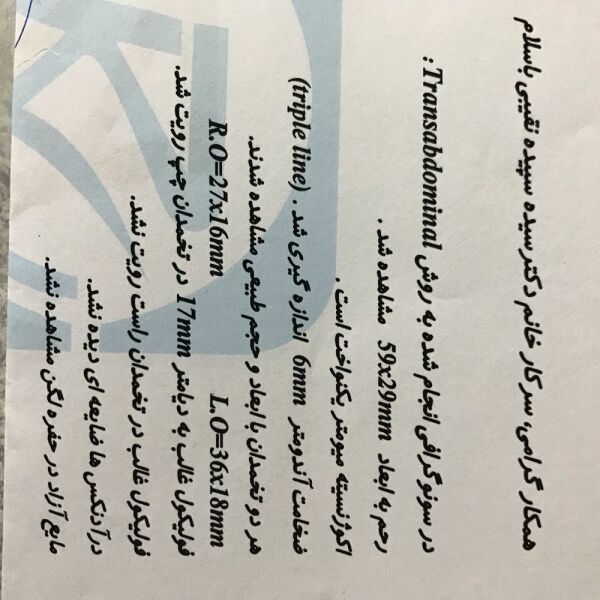 همکار گرامی، سرکار خانم دکتر سیده سپیده نقیبی باسلام
در سونوگرافی انجام شده به روش Transabdominal :
رحم به ابعاد 59x29mm مشاهده شد .
اکوژنسیته میومتر یکنواخت است .
ضخامت آندومتر 6mm اندازه گیری شد . (triple line)
هر دو تخمدان با ابعاد و حجم طبیعی مشاهده شدند.
R.O=27x16mm L.O=36x18mm
فولیکول غالب به دیامتر 17mm در تخمدان چپ رویت شد.
فولیکول غالب در تخمدان راست رویت نشد.
درآدنکس ها ضایعه ای دیده نشد.
مایع آزاد در حفره لگن مشاهده نشد.